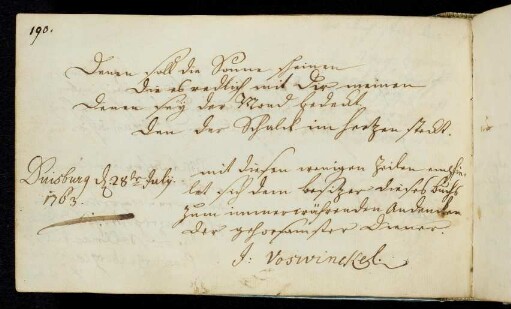 190.
Denen soll die Sonne scheinen
Die es redlich mit Dir meinen
Denen sey der Mond bedeckt
Den der Schalck im hertzen steckt.
Duisburg d 28te July.
1763.
mit diesen wenigen Zeilen empfie-
let sich dem besitzer dieses Buchs
zum immerwährenden Andencken
der gehorsamster Diener.
J: Voswinckel.